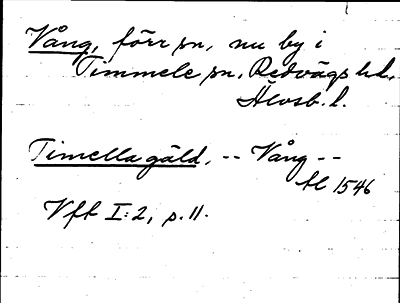 Vång, förr sn, nu by i
Timmele sn, Redvägs hd,
Älvsb. l.
Timella gäld, -- Vång --
1546
Vft I:2, p. 11.